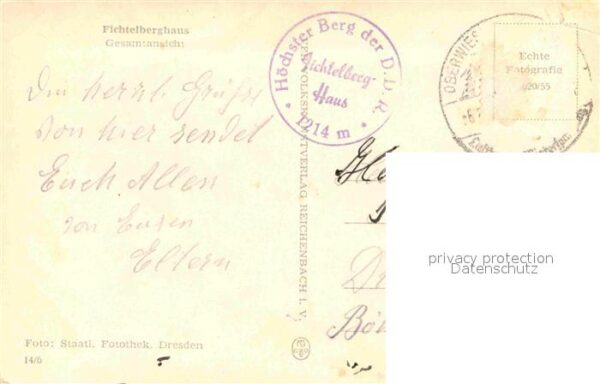 Fichtelberghaus
Gesamtansicht
herzl. Grüße
von hier sendet
Euch Allen
von Euren
Eltern
Foto: Staatl. Fotothek, Dresden
14/6
VOLKSKUNSTVERLAG REICHENBACH i. V.
Höchster Berg der D.D.R.
Fichtelberg-
Haus
1214 m
OBERWIES
Echte
Fotografie
privacy protection
Datenschutz